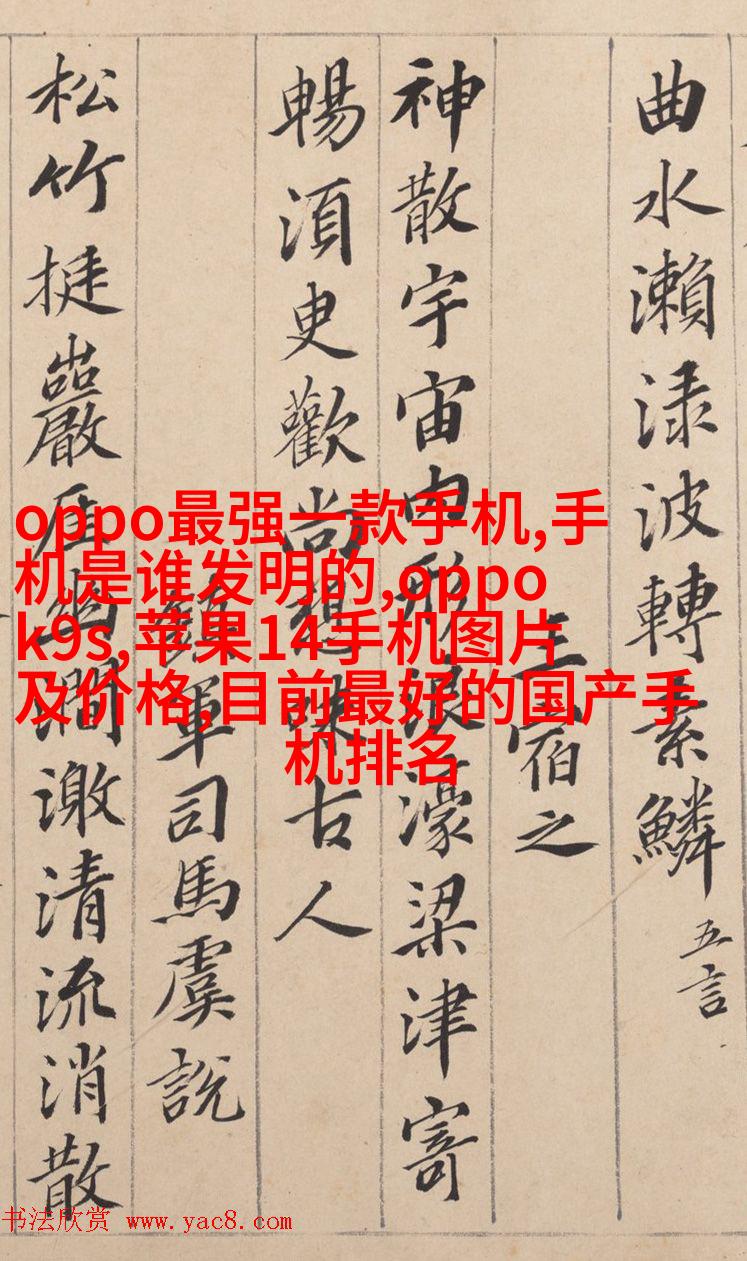 曲水瀨渌波轉素鱗 五言
王宿之
神散宇宙內形浪濠梁津寄
暢湏臾歡尚想味古人
鎮軍司馬虞説
松竹挺巖崖幽澗激清流消散
oppo最强一款手机,手
机是谁发明的,oppo
k9s,苹果14手机图片
及价格,目前最好的国产手
机排名
书法欣赏 www.yac8.com